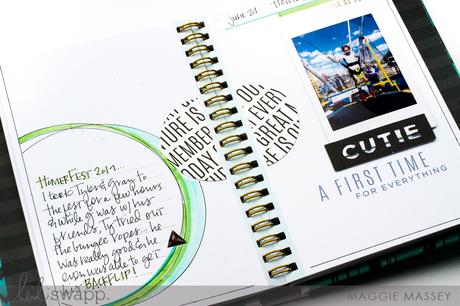 HOMERFEST 2017...
I took Tyler & Gray to
the fest for a few hours
& while G was w/ his
friends, Ty tried out
the bungee ropes... he
was really good & he
even was able to get
BACKFLIP!
URE IS
MEMBER
TODAY
OU
EVERY
GREAT A
E IS O
june 21
CUTIE
A FIRST TIME
FOR EVERYTHING
heidi swapp
MAGGIE MASSEY